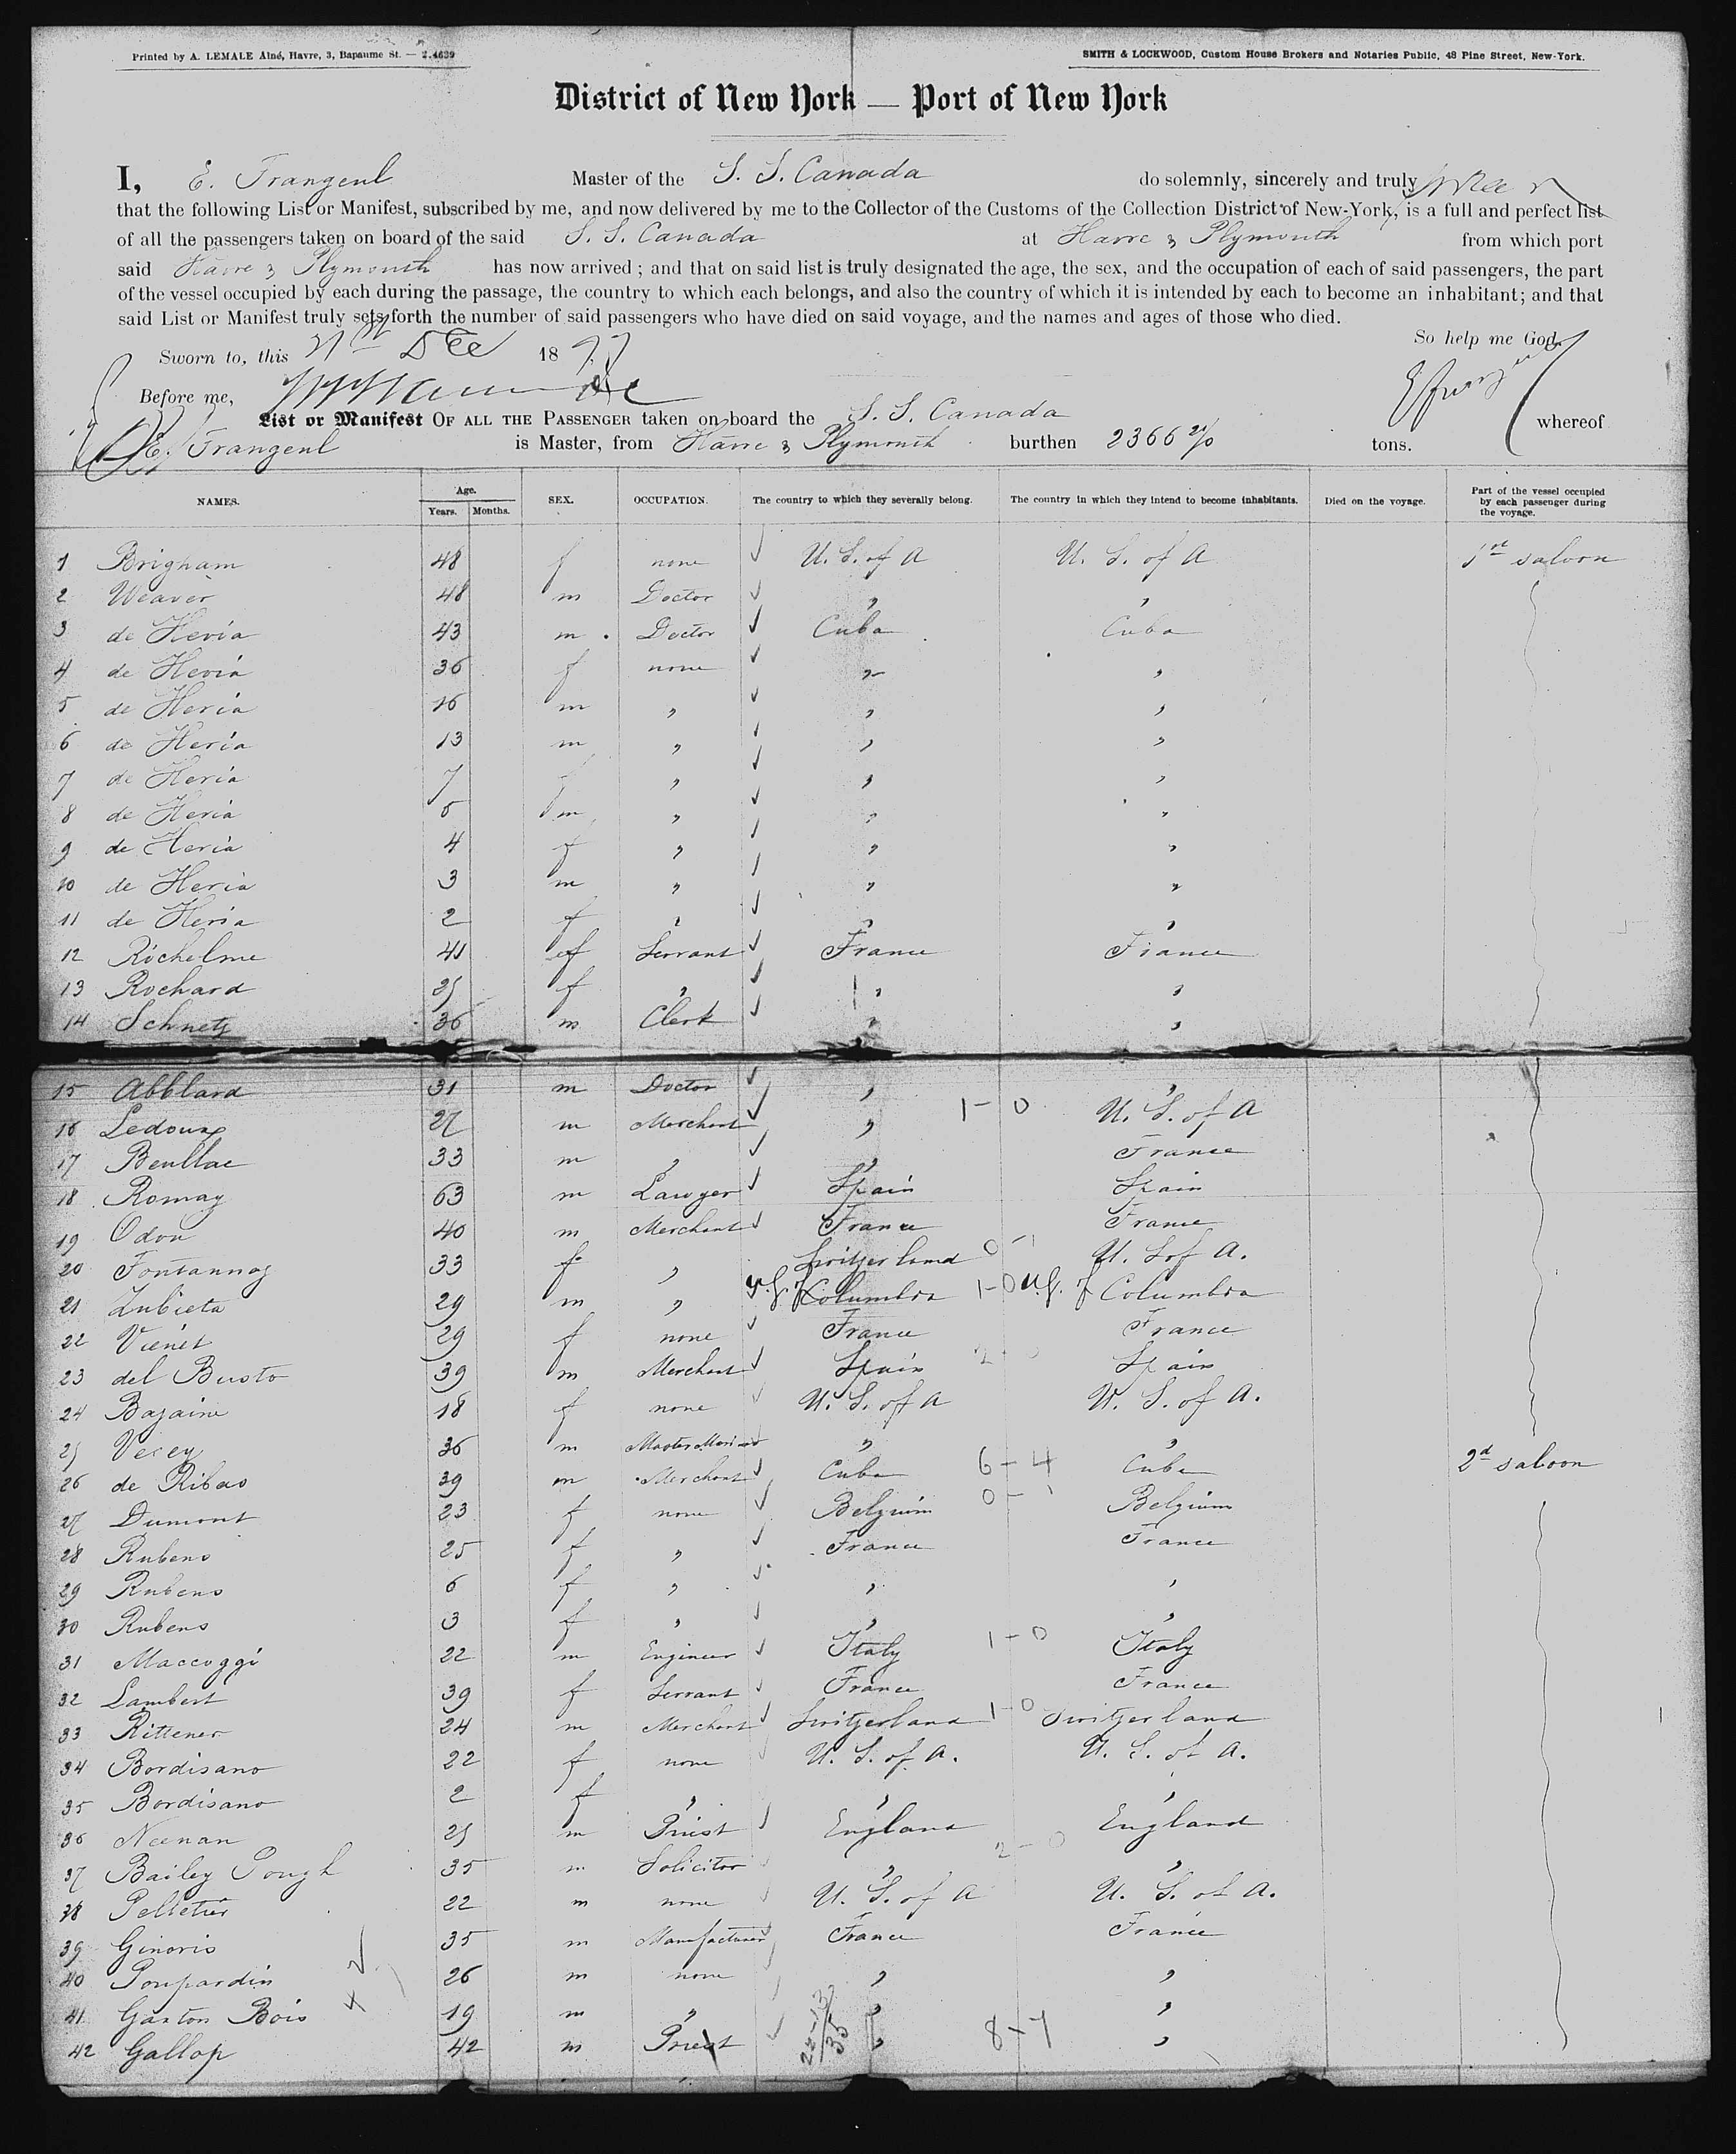 Printed by A. LEMALE Aîné, Havre, 3, Bapaume St. — 2.4639
SMITH & LOCKWOOD, Custom House Brokers and Notaries Public, 48 Pine Street, New-York.
District of New York — Port of New York
I, E. Frangeul Master of the S. S. Canada do solemnly, sincerely and truly
that the following List or Manifest, subscribed by me, and now delivered by me to the Collector of the Customs of the Collection District of New-York, is a full and perfect list
of all the passengers taken on board of the said S. S. Canada at Havre & Plymouth from which port
said Havre & Plymouth has now arrived; and that on said list is truly designated the age, the sex, and the occupation of each of said passengers, the part
of the vessel occupied by each during the passage, the country to which each belongs, and also the country of which it is intended by each to become an inhabitant; and that
said List or Manifest truly sets forth the number of said passengers who have died on said voyage, and the names and ages of those who died.
So help me God.
Sworn to, this 21st Dec 1877
Before me,
List or Manifest OF ALL THE PASSENGER taken on board the S. S. Canada whereof
E. Frangeul is Master, from Havre & Plymouth burthen 2366 tons.
NAMES. Age. Years. Months. SEX. OCCUPATION. The country to which they severally belong. The country in which they intend to become inhabitants. Died on the voyage. Part of the vessel occupied by each passenger during the voyage.
1 Brigham 48 f none U. S. of A U. S. of A 1st saloon
2 Weaver 48 m Doctor " "
3 de Hevia 43 m Doctor Cuba Cuba
4 de Hevia 36 f none " "
5 de Hevia 16 m " " "
6 de Hevia 13 m " " "
7 de Hevia 7 f " " "
8 de Hevia 5 m " " "
9 de Hevia 4 f " " "
10 de Hevia 3 m " " "
11 de Hevia 2 f " " "
12 Richelme 41 f Servant France France
13 Rochard 25 f " " "
14 Schnetz 36 m Clerk " "
15 Abblard 31 m Doctor " "
16 Ledoux 27 m Merchant " 1-0 U. S. of A
17 Beullac 33 m " " France
18 Romay 63 m Lawyer Spain Spain
19 Odon 40 m Merchant France France
20 Fontannaz 33 f " Switzerland U. S. of A.
21 Zubieta 29 m " U.S. of Columbia 1-0 U.S. of Columbia
22 Vienet 29 f none France France
23 del Busto 39 m Merchant Spain Spain
24 Bazaine 18 f none U. S. of A U. S. of A.
25 Verey 36 m Master Mariner " "
26 de Ribas 39 m Merchant Cuba 6-4 Cuba 2d saloon
27 Dumont 23 f none Belgium 0-1 Belgium
28 Rubens 25 f " France France
29 Rubens 6 f " " "
30 Rubens 3 f " " "
31 Maccoggi 22 m Engineer Italy 1-0 Italy
32 Lambert 39 f Servant France France
33 Rittener 24 m Merchant Switzerland 1-0 Switzerland
34 Bordisano 22 f none U. S. of A. U. S. of A.
35 Bordisano 2 f " " "
36 Neenan 25 m Priest England England
37 Bailey Gough 35 m Solicitor " 2-0 "
38 Pelletier 22 m none U. S. of A U. S. of A.
39 Ginoris 35 m Manufacturer France France
40 Poupardin 26 m none " "
41 Gaston Bois 19 m " " "
42 Gallop 42 m Priest 22-13/35 " 8-7 "